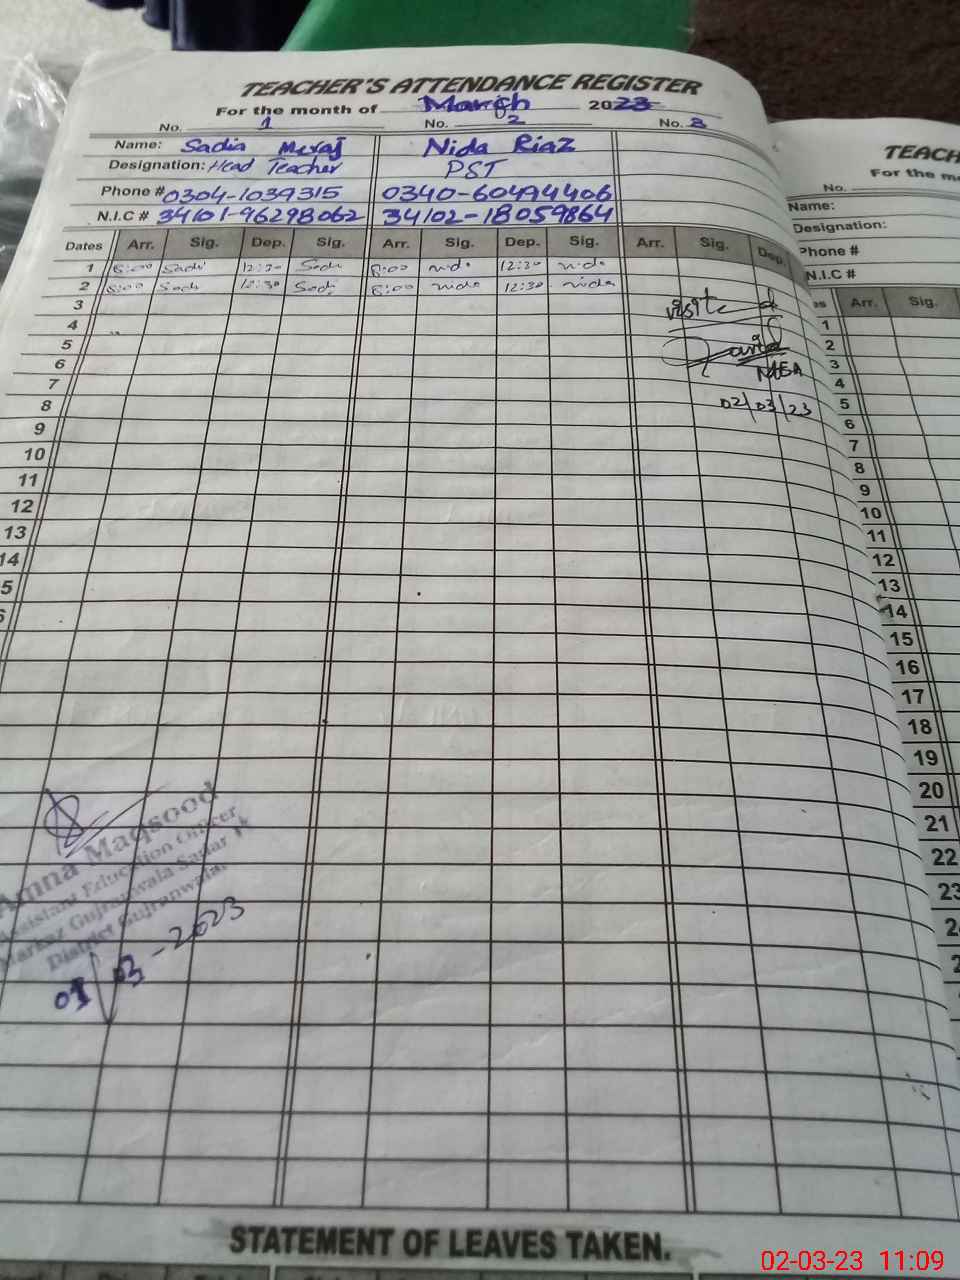 TEACHER'S ATTENDANCE REGISTER
For the month of March 2023
No. 1 No. 2 No. 3
Name: Sadia Meraj Nida Riaz
Designation: Head Teacher PST
Phone # 0304-1039315 0340-60494406
N.I.C # 34101-96298062 34102-18059864
Dates Arr. Sig. Dep. Sig. Arr. Sig. Dep. Sig. Arr. Sig. Dep.
1 8:00 Sadi 12:30 Sadi 8:00 nida 12:30 nida
2 8:00 Sadi 12:30 Sadi 8:00 nida 12:30 nida
3
4
5
6
7
8
9
10
11
12
13
14
5
6
visited
MEA
02/03/23
Amna Maqsood
Assistant Education Officer
Markaz Gujranwala Sadar
District Gujranwala
01/03-2023
STATEMENT OF LEAVES TAKEN.
TEACH
For the m
No.
Name:
Designation:
Phone #
N.I.C #
es Arr. Sig.
1
2
3
4
5
6
7
8
9
10
11
12
13
14
15
16
17
18
19
20
21
22
23
2
2
02-03-23 11:09